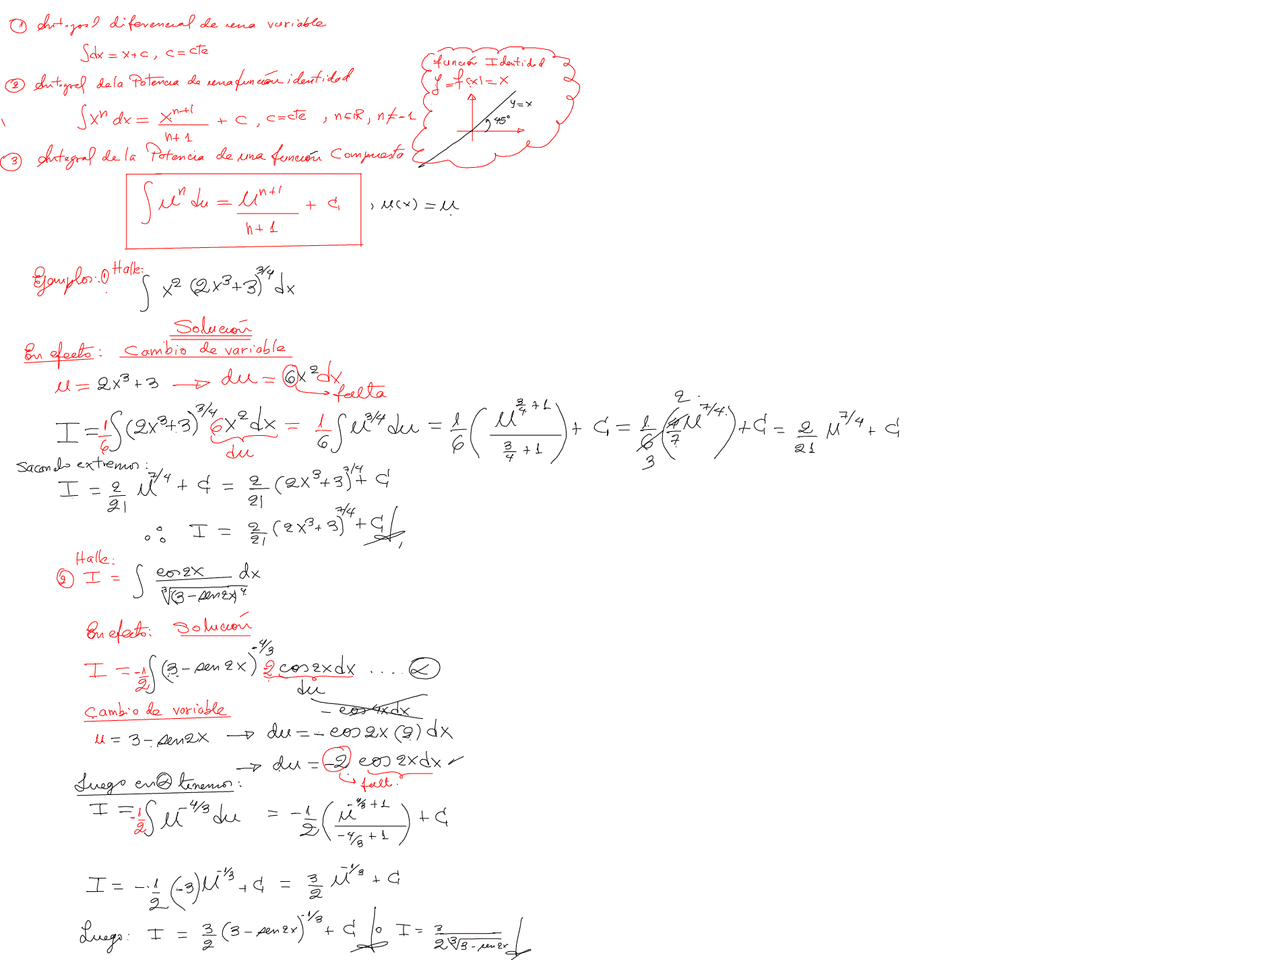 ① Integral diferencial de una variable
∫dx = x + c, c = cte
② Integral de la Potencia de una función identidad
∫xⁿ dx = xⁿ⁺¹/(n+1) + c, c = cte, n∈ℝ, n ≠ -1
función Identidad
y = f(x) = x
y = x
45°
③ Integral de la Potencia de una función Compuesta
∫uⁿ du = uⁿ⁺¹/(n+1) + C, u(x) = u
Ejemplos: ① Halle:
∫ x² (2x³+3)^(3/4) dx
Solución
En efecto: Cambio de variable
u = 2x³+3 → du = 6x²dx
falta
I = 1/6 ∫(2x³+3)^(3/4) 6x²dx = 1/6 ∫u^(3/4) du = 1/6 (u^(3/4+1)/(3/4+1)) + C = 1/6 (4/7 u^(7/4)) + C = 2/21 u^(7/4) + C
du
2
3
Sacando extremos:
I = 2/21 u^(7/4) + C = 2/21 (2x³+3)^(7/4) + C
∴ I = 2/21 (2x³+3)^(7/4) + C
Halle:
② I = ∫ cos2x/∛(3-sen2x)⁴ dx
En efecto: Solución
I = -1/2 ∫(3-sen2x)^(-4/3) 2cos2xdx .... α
du
- cos4xdx
Cambio de variable
u = 3-sen2x → du = -cos2x(2)dx
→ du = -2 cos2xdx ✓
falt.
Luego en α tenemos:
I = -1/2 ∫u^(-4/3) du = -1/2 (u^(-4/3+1)/(-4/3+1)) + C
I = -1/2 (-3)u^(-1/3) + C = 3/2 u^(-1/3) + C
Luego: I = 3/2 (3-sen2x)^(-1/3) + C o I = 3/(2∛(3-sen2x))